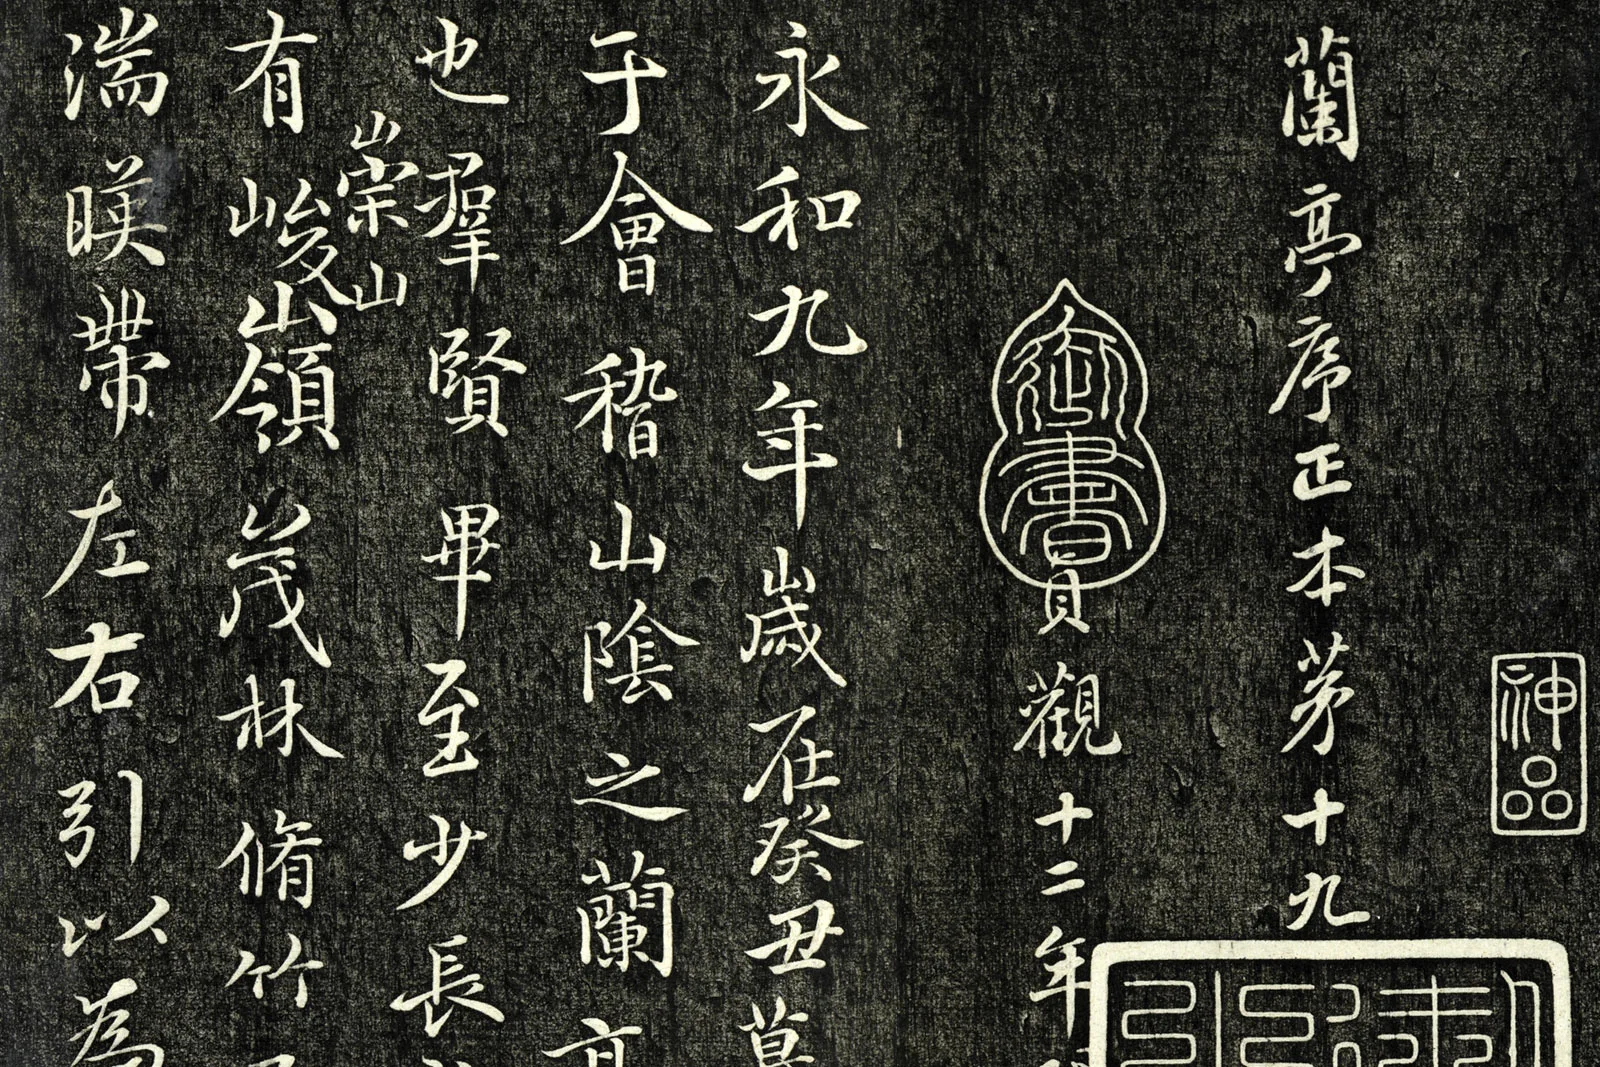 神品
蘭亭序正本苐十九
御書
貞觀十二年
永和九年歲在癸丑暮
于會稽山陰之蘭亭
也羣賢畢至少長
崇山
有峻領茂林脩竹
湍暎帶左右引以為